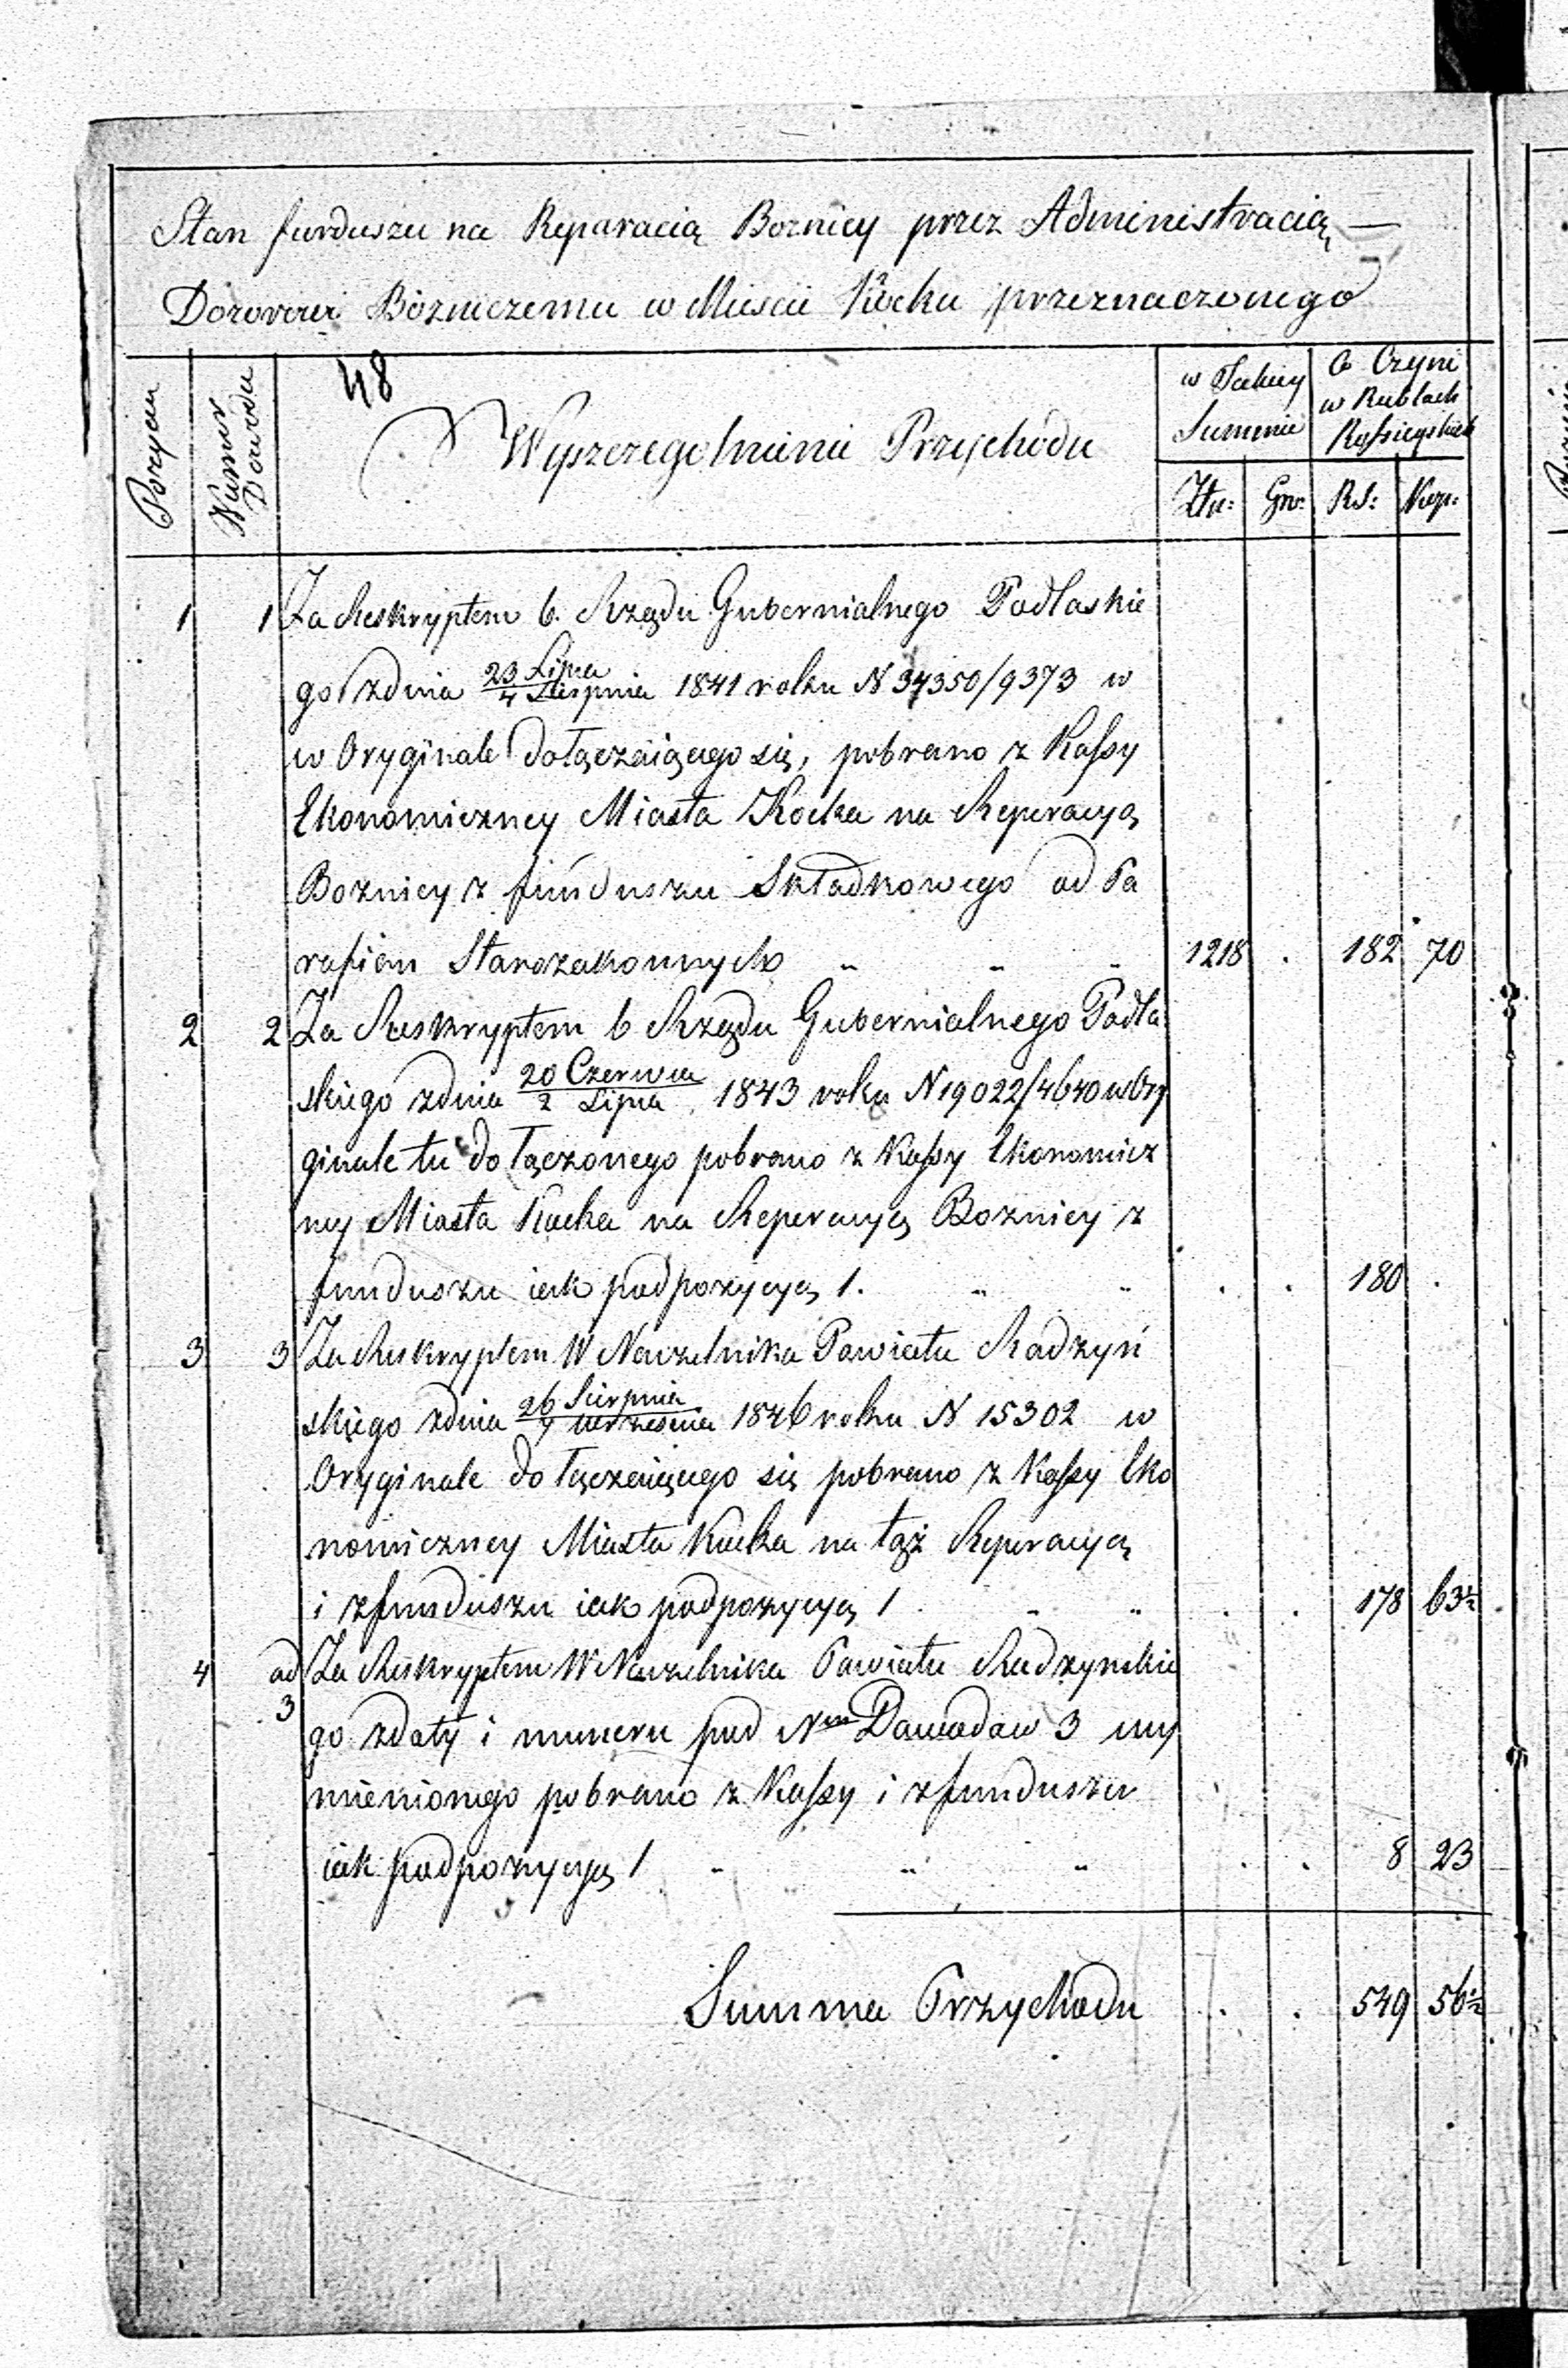 Stan funduszu na Reparacią Boznicy przez Administracią —
Dozorowi Bozniczemu w Miescie Kocku przeznaczonego
48
Pozycia
Numer Dowodu
Wyszczegolnienie Przychodu
w Takiey Summie
Co Czyni w Rublach Rossieyskich
Złn: Gr: RS: Kop:
1 1 Za Reskryptem b. Rządu Gubernialnego Podlaskie
go zdnia 23 Lipca / 4 Sierpnia 1841 roku N 34350/9373 w
w Oryginale dołączaiącego się, pobrano z Kassy
Ekonomiczney Miasta Kocka na Reperacyą
Boznicy z funduszu Składkowego od Pa
rafian Starozakonnych „ „ „ 1218 . 182 70
2 2 Za Reskryptem b Rządu Gubernialnego Podla
skiego zdnia 20 Czerwca / 2 Lipca 1843 roku N 19022/4640 w Ory
ginale tu dołączonego pobrano z Kassy Ekonomicz
ney Miasta Kocka na Reperacyą Boznicy z
funduszu iak podpozycyą 1. „ „ . . 180 .
3 3 Za Reskryptem W Naczelnika Powiatu Radzyń
skiego zdnia 26 Sierpnia / 7 Września 1846 roku N 15302 w
Oryginale dołączaiącego się pobrano z Kassy Eko
nomiczney Miasta Kocka na tąż Reperacyą
i zfunduszu iak podpozycyą 1 . „ „ . . 178 63½
4 ad 3 Za Reskryptem W Naczelnika Powiatu Radzynskie
go zdaty i numeru pod Nrm Dowodow 3 wy
mienionego pobrano z Kassy i zfunduszu
iak podpozycyą 1 „ „ „ . . 8 23
Summa Przychodu . . 549 56½